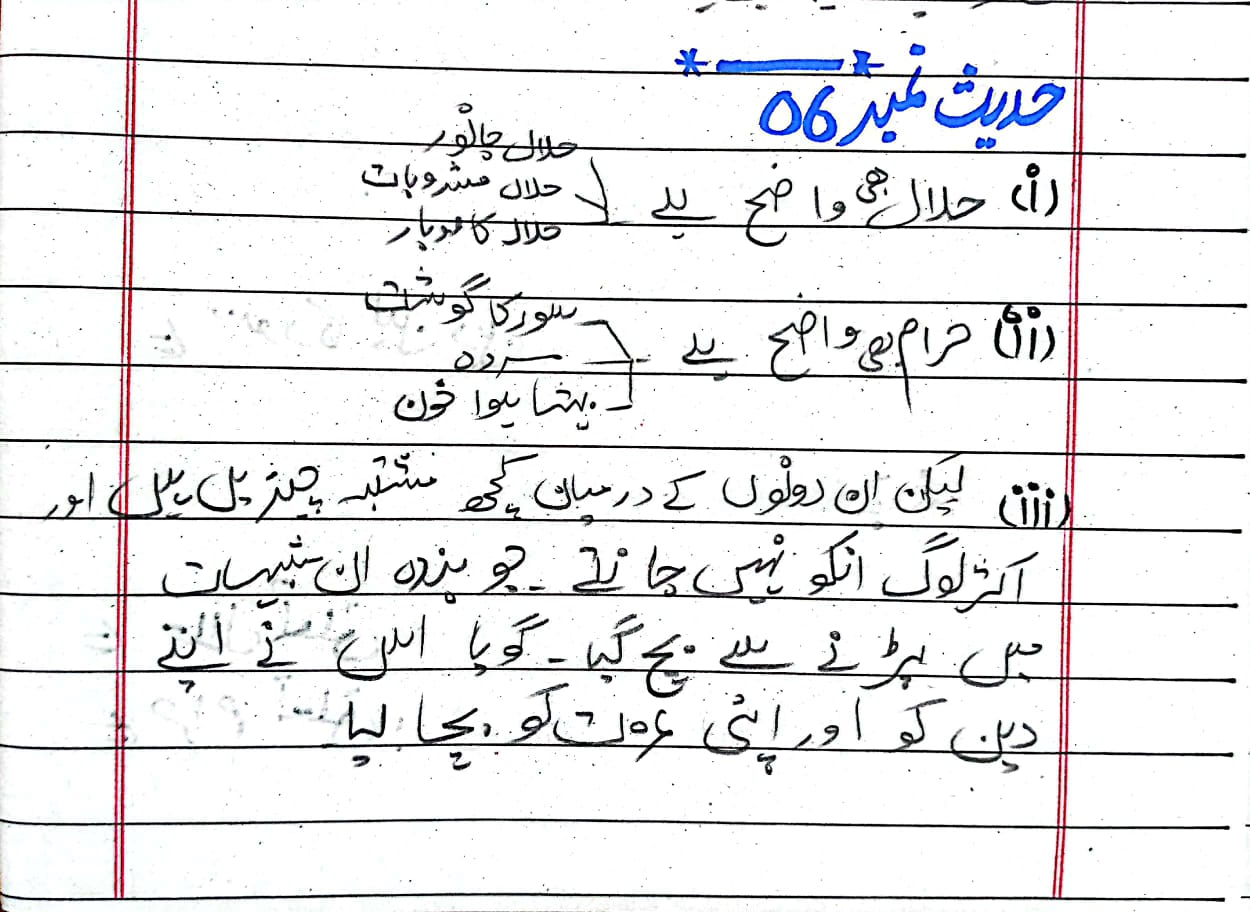 حدیث نمبر 06
(i) حلال بھی واضح ہے
حلال جانور
حلال مشروبات
حلال کاروبار
(ii) حرام بھی واضح ہے
سور کا گوشت
مردہ
بہتا ہوا خون
(iii) لیکن ان دونوں کے درمیان کچھ مشتبہ چیزیں ہیں اور
اکثر لوگ انکو نہیں جانتے ۔ جو بندہ ان شبہات
میں پڑنے سے بچ گیا ۔ گویا اس نے اپنے
دین کو اور اپنی عزت کو بچا لیا